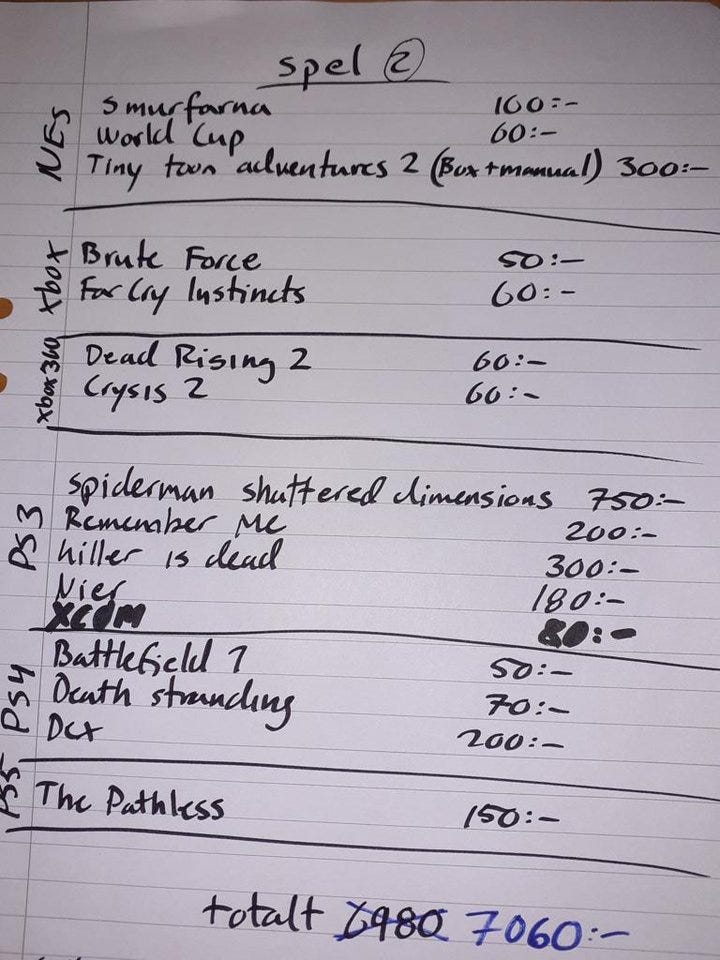 spel 2
NES
Smurfarna 100:-
World Cup 60:-
Tiny toon adventures 2 (Box+manual) 300:-
Xbox
Brute Force 50:-
Far Cry Instincts 60:-
Xbox360
Dead Rising 2 60:-
Crysis 2 60:-
PS3
spiderman shattered dimensions 750:-
Remember Me 200:-
killer is dead 300:-
Nier 180:-
XCOM 80:-
PS4
Battlefield 1 50:-
Death stranding 70:-
Dex 200:-
PS5
The Pathless 150:-
totalt 6980 7060:-